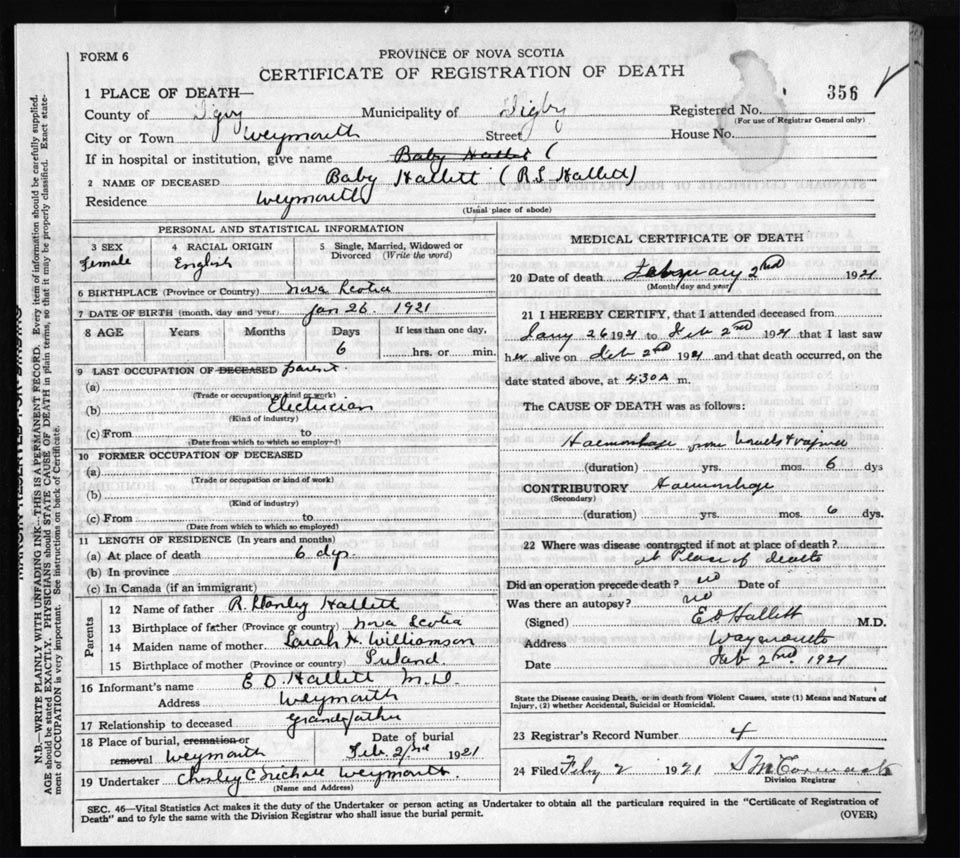 FORM 6
PROVINCE OF NOVA SCOTIA
CERTIFICATE OF REGISTRATION OF DEATH
356
1 PLACE OF DEATH—
County of Digby Municipality of Digby Registered No.
(For use of Registrar General only)
City or Town Weymouth Street House No.
If in hospital or institution, give name Baby Hallett (
2 NAME OF DECEASED Baby Hallett (R S Hallett)
Residence Weymouth
(Usual place of abode)
PERSONAL AND STATISTICAL INFORMATION
3 SEX 4 RACIAL ORIGIN 5 Single, Married, Widowed or
Divorced (Write the word)
Female English
6 BIRTHPLACE (Province or Country) Nova Scotia
7 DATE OF BIRTH (month, day and year) Jan 26. 1921
8 AGE Years Months Days If less than one day,
6 hrs. or min.
9 LAST OCCUPATION OF DECEASED parent
(a)
(Trade or occupation or kind or work)
(b) Electrician
(Kind of industry)
(c) From to
(Date from which to which so employed)
10 FORMER OCCUPATION OF DECEASED
(a)
(Trade or occupation or kind of work)
(b)
(Kind of industry)
(c) From to
(Date from which to which so employed)
11 LENGTH OF RESIDENCE (In years and months)
(a) At place of death 6 dys.
(b) In province
(c) In Canada (if an immigrant)
Parents
12 Name of father R. Stanley Hallett
13 Birthplace of father (Province or country) Nova Scotia
14 Maiden name of mother Sarah H. Williamson
15 Birthplace of mother (Province or country) Ireland
16 Informant's name E. D. Hallett M.D.
Address Weymouth
17 Relationship to deceased Grandfather
18 Place of burial, cremation or Date of burial
removal Weymouth Feb. 2nd 1921
19 Undertaker Weymouth.
(Name and Address)
MEDICAL CERTIFICATE OF DEATH
20 Date of death February 2nd 1921
(Month, day and year)
21 I HEREBY CERTIFY, that I attended deceased from
Jany 26 1921 to Feb 2nd 1921 that I last saw
her alive on Feb 2nd 1921 and that death occurred, on the
date stated above, at 4.30 A m.
The CAUSE OF DEATH was as follows:
Haemorrhage from bowels & vagina
(duration) yrs. mos. 6 dys
CONTRIBUTORY Haemorrhage
(Secondary)
(duration) yrs. mos. 6 dys.
22 Where was disease contracted if not at place of death?
at Place of death
Did an operation precede death? no Date of
Was there an autopsy? no
(Signed) E D Hallett M.D.
Address Weymouth
Date Feb 2nd. 1921
State the Disease causing Death, or in death from Violent Causes, state (1) Means and Nature of
Injury, (2) whether Accidental, Suicidal or Homicidal.
23 Registrar's Record Number 4
24 Filed Feby 2 1921
Division Registrar
SEC. 46—Vital Statistics Act makes it the duty of the Undertaker or person acting as Undertaker to obtain all the particulars required in the "Certificate of Registration of
Death" and to fyle the same with the Division Registrar who shall issue the burial permit. (OVER)
N.B.—WRITE PLAINLY WITH UNFADING INK—THIS IS A PERMANENT RECORD. Every item of information should be carefully supplied.
AGE should be stated EXACTLY. PHYSICIANS should STATE CAUSE OF DEATH in plain terms, so that it may be properly classified. Exact state-
ment of OCCUPATION is very important. See instructions on back of Certificate.